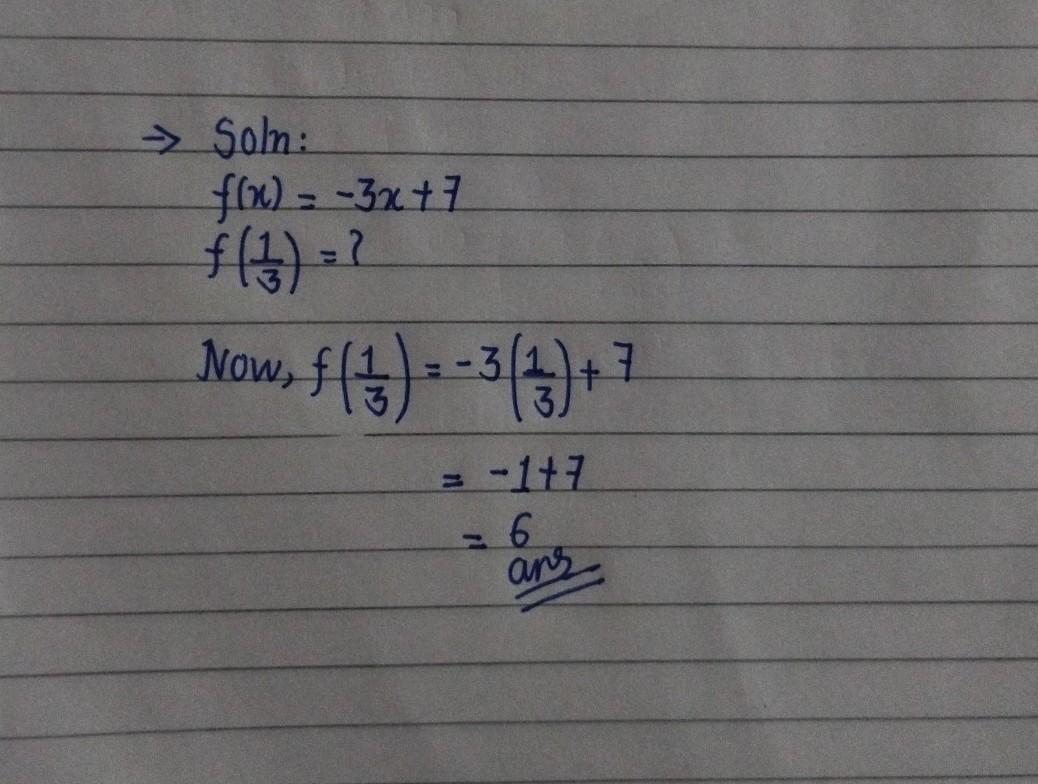 → Soln:
f(x) = -3x+7
f(1/3) = ?
Now, f(1/3) = -3(1/3)+7
= -1+7
= 6
ans